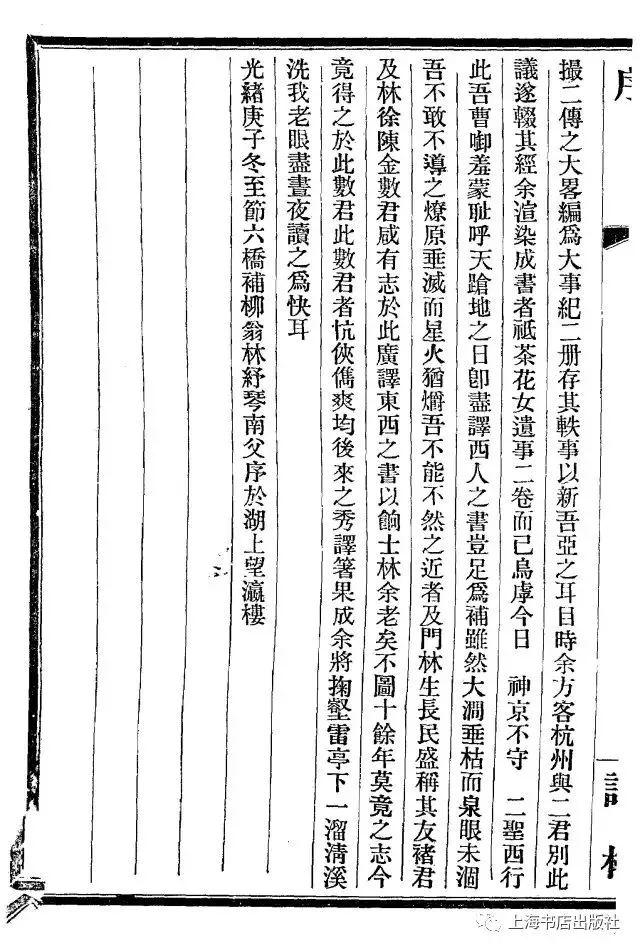 序
一
譯林
撮二傳之大畧編爲大事紀二册存其軼事以新吾亞之耳目時余方客杭州與二君別此
議遂輟其經余渲染成書者祗茶花女遺事二卷而已烏虖今日　神京不守　二聖西行
此吾曹啣羞蒙耻呼天蹌地之日卽盡譯西人之書豈足爲補雖然大澗垂枯而泉眼未涸
吾不敢不導之燎原垂滅而星火猶爝吾不能不然之近者及門林生長民盛稱其友褚君
及林徐陳金數君咸有志於此廣譯東西之書以餉士林余老矣不圖十餘年莫竟之志今
竟得之於此數君此數君者忼俠儁爽均後來之秀譯箸果成余將掬壑雷亭下一溜清溪
洗我老眼盡晝夜讀之爲快耳
光緒庚子冬至節六橋補柳翁林紓琴南父序於湖上望瀛樓
上海书店出版社